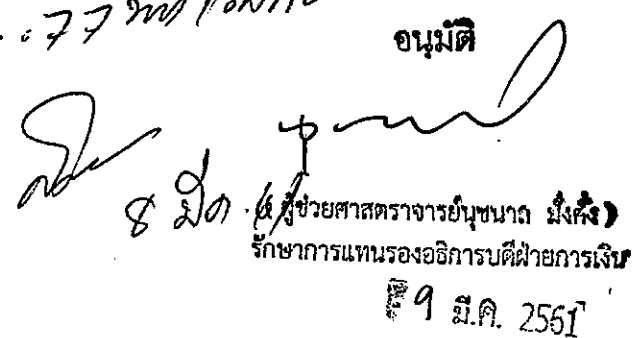 อนุมัติ
8 มีค. 61
(ผู้ช่วยศาสตราจารย์นุชนาถ มั่งคั่ง)
รักษาการแทนรองอธิการบดีฝ่ายการเงิน
9 มี.ค. 2561